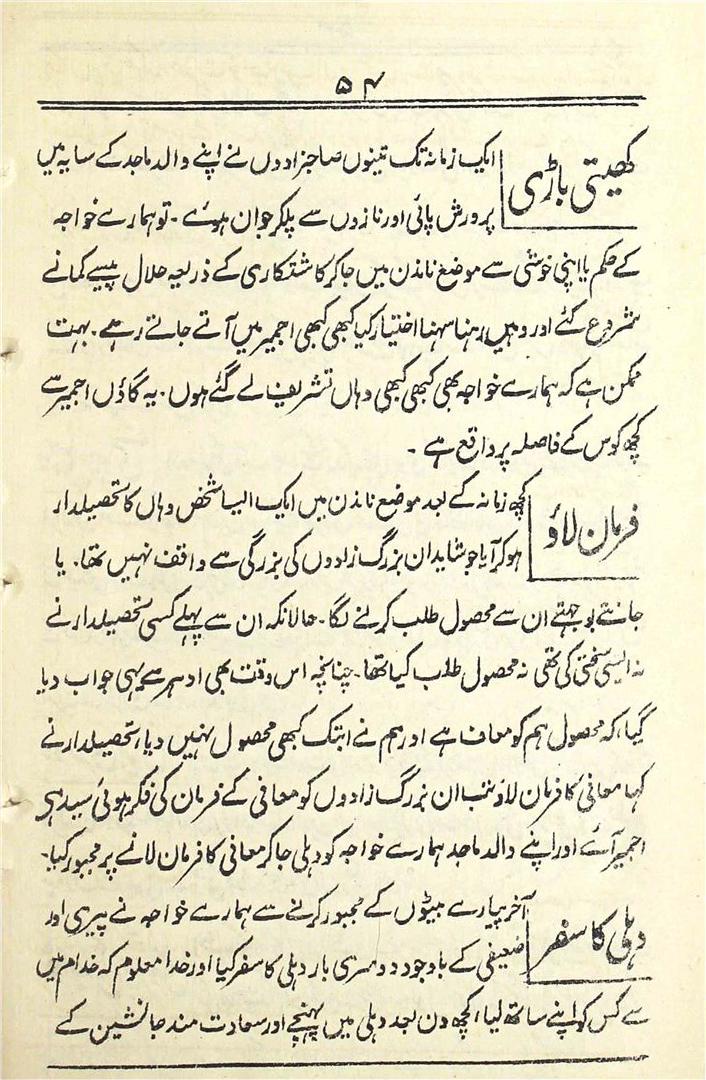 ۵۴
کھیتی باڑی
ایک زمانہ تک تینوں صاحبزادوں نے اپنے والد ماجد کے سایہ میں
پرورش پائی اور نازوں سے پلکر جوان ہوئے۔ تو ہمارے خواجہ
کے حکم یا اپنی خوشی سے موضع ناندن میں جا کر کاشتکاری کے ذریعہ حلال پیسے کمانے
شروع کئے اور وہیں رہنا سہنا اختیار کیا کبھی کبھی اجمیر میں آتے جاتے رہے۔ بہت
ممکن ہے کہ ہمارے خواجہ بھی کبھی کبھی وہاں تشریف لے گئے ہوں۔ یہ گاؤں اجمیر سے
کچھ کوس کے فاصلہ پر واقع ہے ۔
فرمان لاؤ
کچھ زمانہ کے بعد موضع ناندن میں ایک ایسا شخص وہاں کا تحصیلدار
ہو کر آیا جو شاید ان بزرگ زادوں کی بزرگی سے واقف نہیں تھا۔ یا
جانتے بوجہتے ان سے محصول طلب کرنے لگا۔ حالانکہ ان سے پہلے کسی تحصیلدار نے
نہ ایسی سختی کی تھی نہ محصول طلب کیا تھا۔ چنانچہ اس وقت بھی ادہر سے یہی جواب دیا
گیا، کہ محصول ہم کو معاف ہے اور ہم نے ابتک کبھی محصول نہیں دیا، تحصیلدار نے
کہا معافی کا فرمان لاؤ تب ان بزرگ زادوں کو معافی کے فرمان کی فکر ہوئی سیدہے
اجمیر آئے اور اپنے والد ماجد ہمارے خواجہ کو دہلی جا کر معافی کا فرمان لانے پر مجبور کیا۔
دہلی کا سفر
آخر پیارے بیٹوں کے مجبور کرنے سے ہمارے خواجہ نے پیری اور
ضعیفی کے باوجود دوسری بار دہلی کا سفر کیا اور خدا معلوم کہ خدام میں
سے کس کو اپنے ساتھ لیا، کچھ دن بعد دہلی میں پہنچے اور سعادت مند جانشین کے